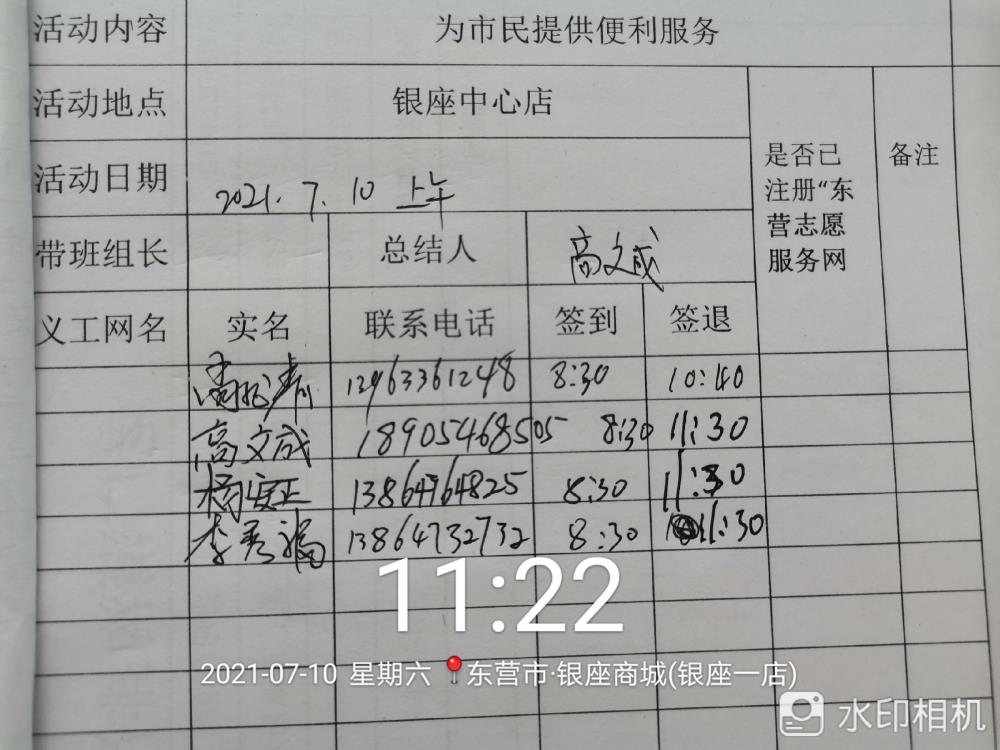 活动内容 为市民提供便利服务
活动地点 银座中心店
是否已注册“东营志愿服务网
备注
活动日期 2021.7.10 上午
带班组长 总结人 高文成
义工网名 实名 联系电话 签到 签退
8:30 10:40
高文成 18905468505 8:30 11:30
13864764825 8:30 11:30
李秀福 13864732732 8:30 11:30
11:22
2021-07-10 星期六 东营市·银座商城(银座一店)
水印相机